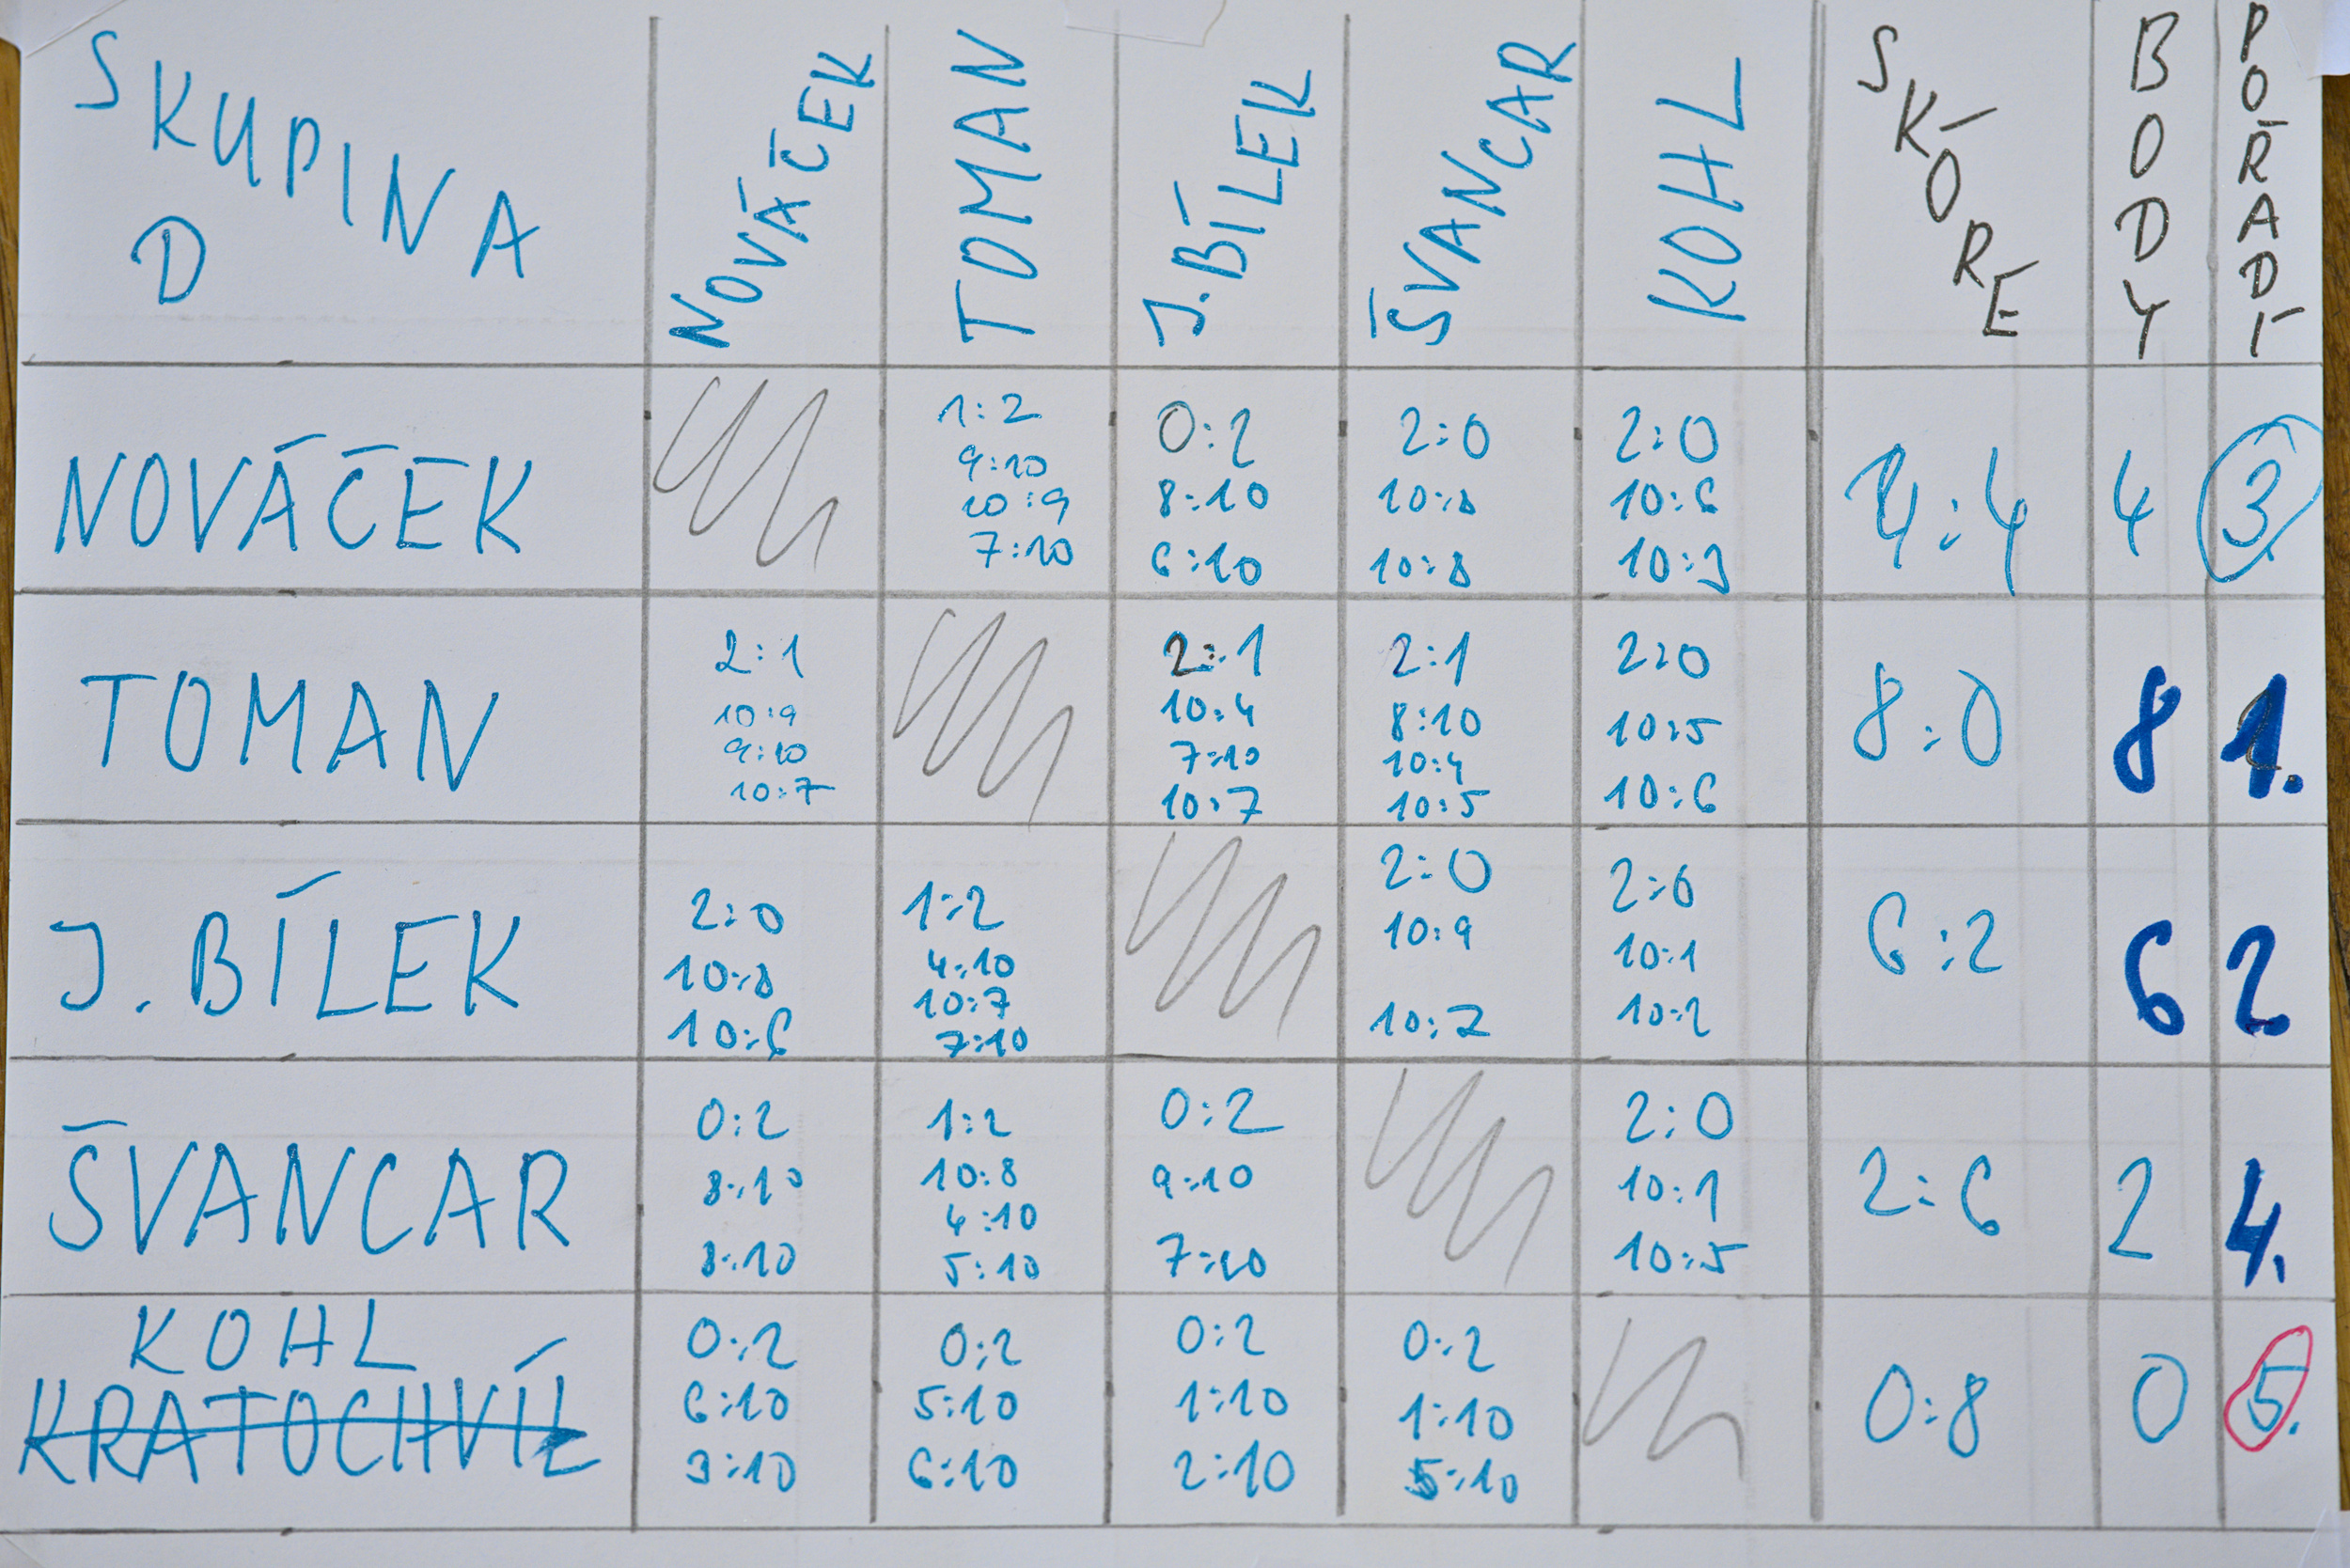 SKUPINA
D
NOVÁČEK
TOMAN
J. BÍLEK
ŠVANCAR
KOHL
SKÓRE
BODY
POŘADÍ
NOVÁČEK
1:2
9:10
10:9
7:10
0:2
8:10
6:10
2:0
10:8
10:8
2:0
10:6
10:3
4:4
4
3.
TOMAN
2:1
10:9
9:10
10:7
2:1
10:4
7:10
10:7
2:1
8:10
10:4
10:5
2:0
10:5
10:6
8:0
8
1.
J. BÍLEK
2:0
10:8
10:6
1:2
4:10
10:7
7:10
2:0
10:9
10:7
2:0
10:1
10:2
6:2
6
2.
ŠVANCAR
0:2
8:10
8:10
1:2
10:8
4:10
5:10
0:2
9:10
7:10
2:0
10:1
10:5
2:6
2
4.
KOHL
KRATOCHVÍL
0:2
6:10
3:10
0:2
5:10
6:10
0:2
1:10
2:10
0:2
1:10
5:10
0:8
0
5.